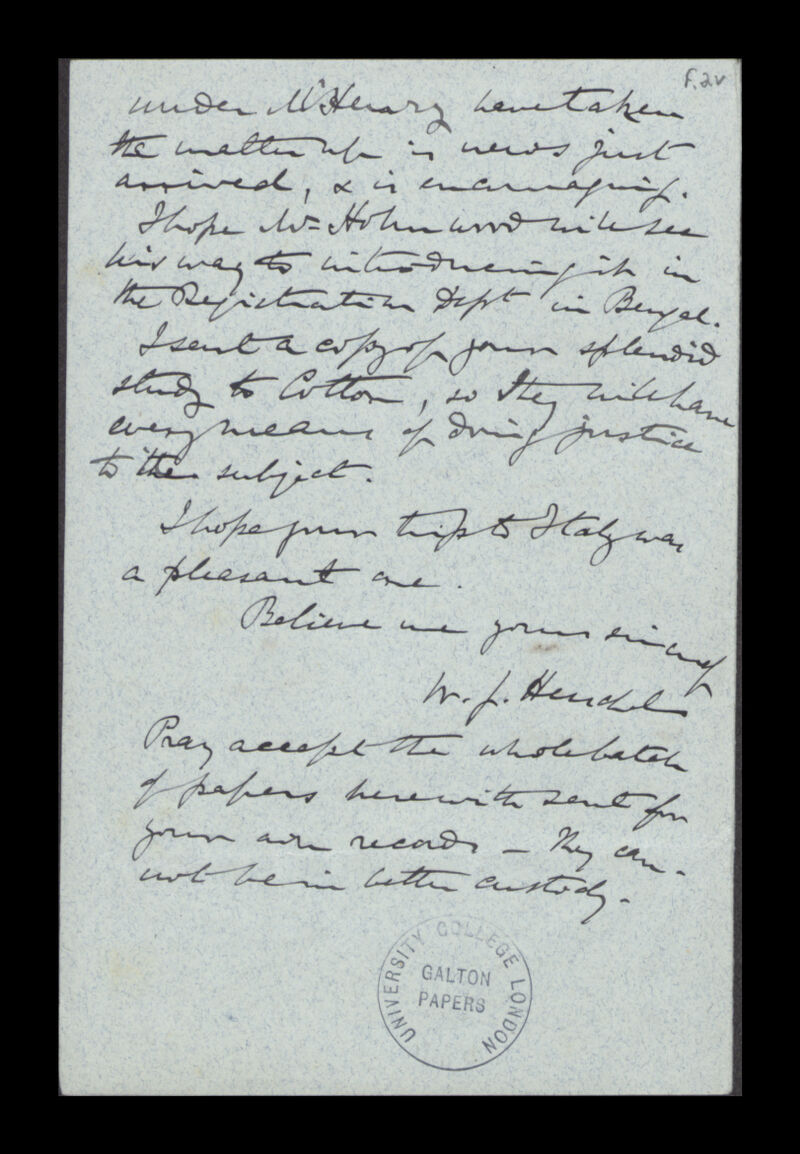 F.2v
under Mr Henry have taken
the matter up is news just
arrived, & is encouraging.
I hope Mr Holmwood will see
his way to introducing it in
the Registration Dept in Bengal.
I sent a copy of your splendid
study to Cotton, so they will have
every means of doing justice
to the subject.
I hope your trip to Italy was
a pleasant one.
Believe me yours sincerely
W. J. Herschel
Pray accept the whole batch
of papers herewith sent for
your own records — They can-
not be in better custody.
UNIVERSITY COLLEGE LONDON
GALTON
PAPERS